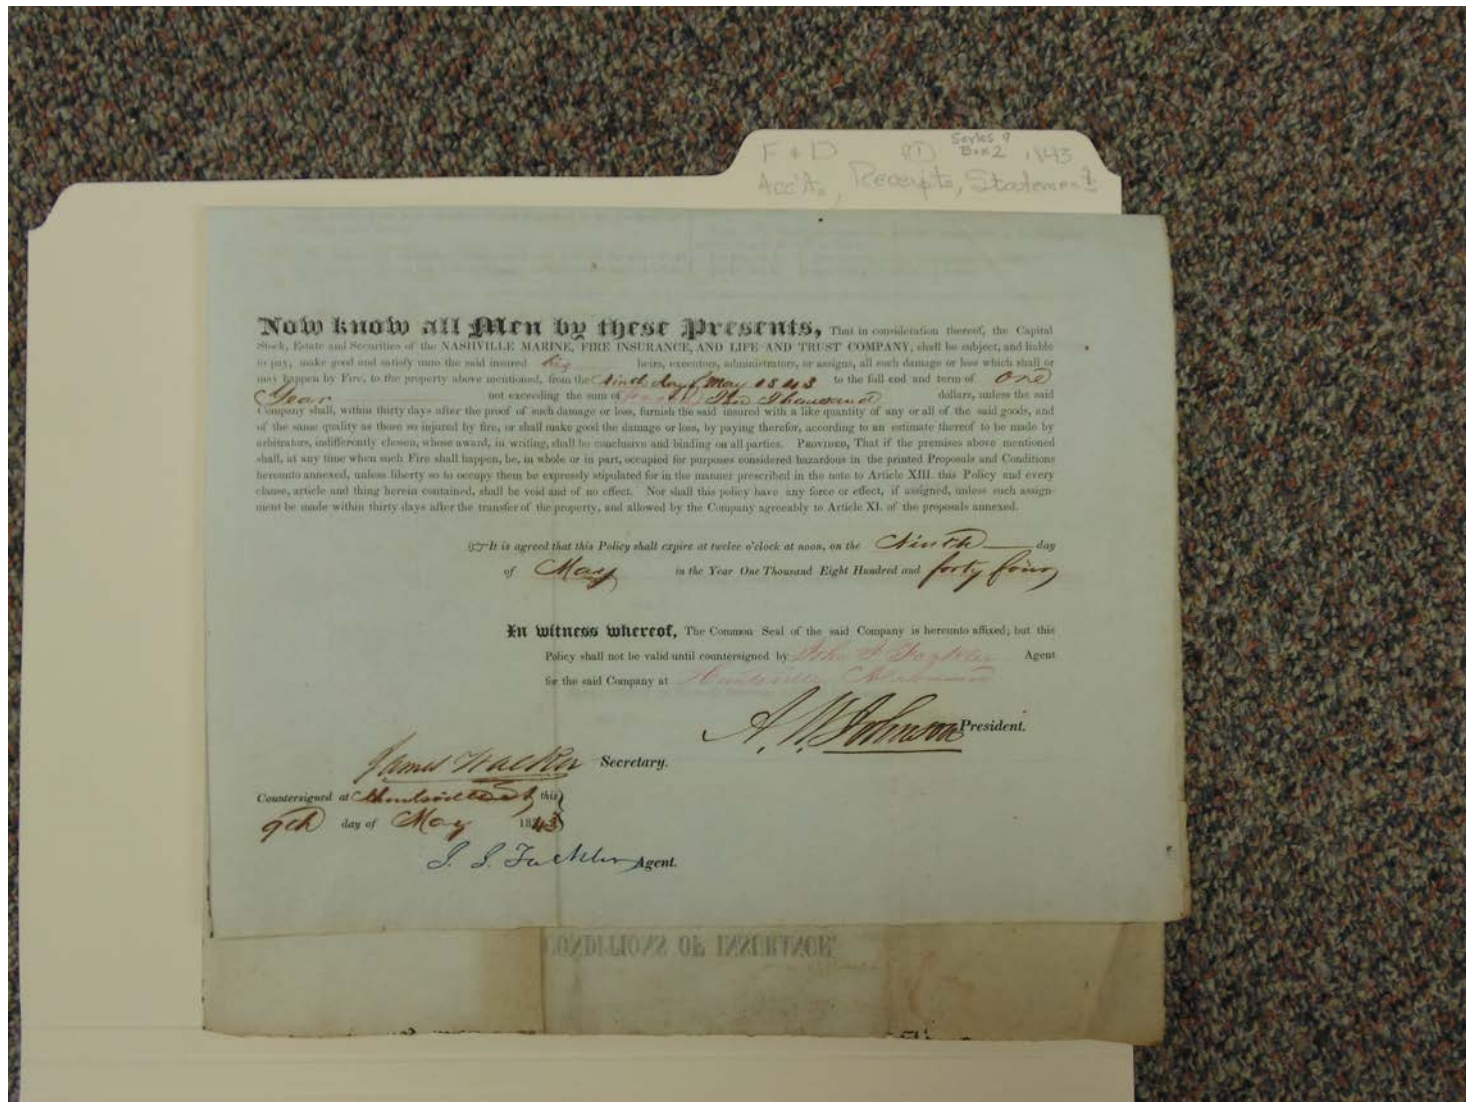 Series 9
F & D Box 2 1843
Acc'ts, Receipts, Statements
Now know all Men by these Presents, That in consideration thereof, the Capital
Stock, Estate and Securities of the NASHVILLE MARINE, FIRE INSURANCE, AND LIFE AND TRUST COMPANY, shall be subject, and liable
to pay, make good and satisfy unto the said insured his heirs, executors, administrators, or assigns, all such damage or loss which shall or
may happen by Fire, to the property above mentioned, from the Ninth day of May 1843 to the full end and term of One
Year not exceeding the sum of Two Thousand dollars, unless the said
Company shall, within thirty days after the proof of such damage or loss, furnish the said insured with a like quantity of any or all of the said goods, and
of the same quality as those so injured by fire, or shall make good the damage or loss, by paying therefor, according to an estimate thereof to be made by
arbitrators, indifferently chosen, whose award, in writing, shall be conclusive and binding on all parties. PROVIDED, That if the premises above mentioned
shall, at any time when such Fire shall happen, be, in whole or in part, occupied for purposes considered hazardous in the printed Proposals and Conditions
hereunto annexed, unless liberty so to occupy them be expressly stipulated for in the manner prescribed in the note to Article XIII. this Policy and every
clause, article and thing herein contained, shall be void and of no effect. Nor shall this policy have any force or effect, if assigned, unless such assign-
ment be made within thirty days after the transfer of the property, and allowed by the Company agreeably to Article XI. of the proposals annexed.
☞It is agreed that this Policy shall expire at twelve o'clock at noon, on the Ninth day
of May in the Year One Thousand Eight Hundred and forty four
In witness whereof, The Common Seal of the said Company is hereunto affixed; but this
Policy shall not be valid until countersigned by John J. Fackler Agent
for the said Company at Huntsville Alabama
A. W. Johnson President.
James Walker Secretary.
Countersigned at Huntsville this
9th day of May 1843
J. J. Fackler Agent.
CONDITIONS OF INSURANCE